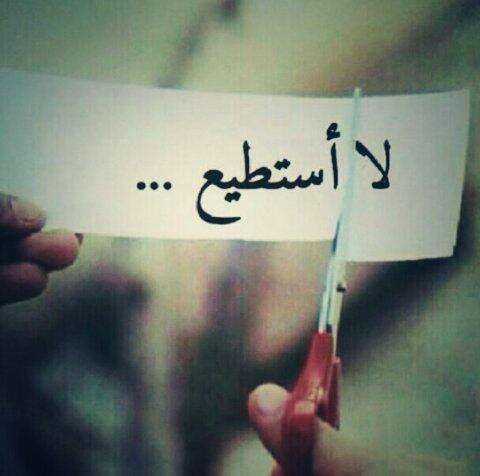 لا أستطيع ...